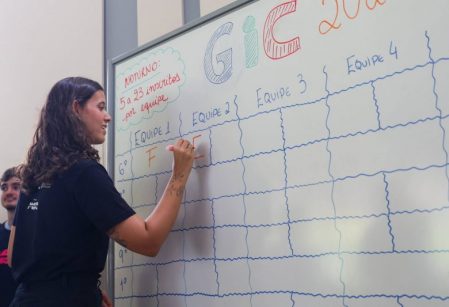 GiC 202
NOTURNO:
5 a 23 inscritos
por equipe
EQUIPE 1 EQUIPE 2 EQUIPE 3 EQUIPE 4
6º F E
9º